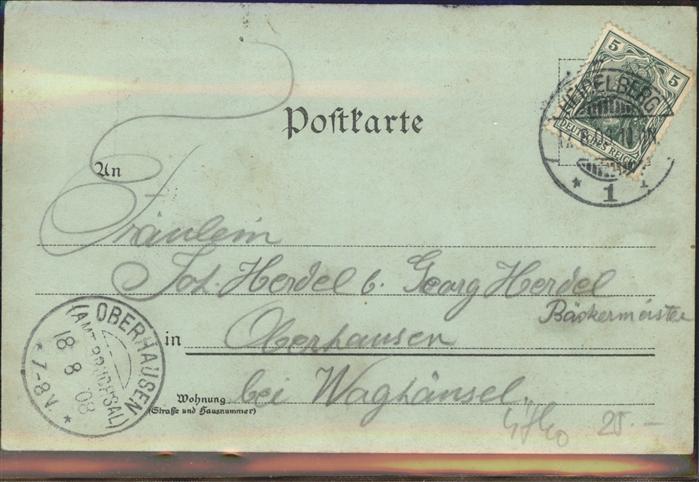 5 5
HEIDELBERG
DEUTSCHES REICH
* 1
Postkarte
An
Fräulein
Joh. Herdel b. Georg Herdel
Bäckermeister
in Oberhausen
bei Waghäusel.
Wohnung
(Straße und Hausnummer)
OBERHAUSEN
(AMT BRUCHSAL)
18 8 08
* 7-8 V. *
25.—